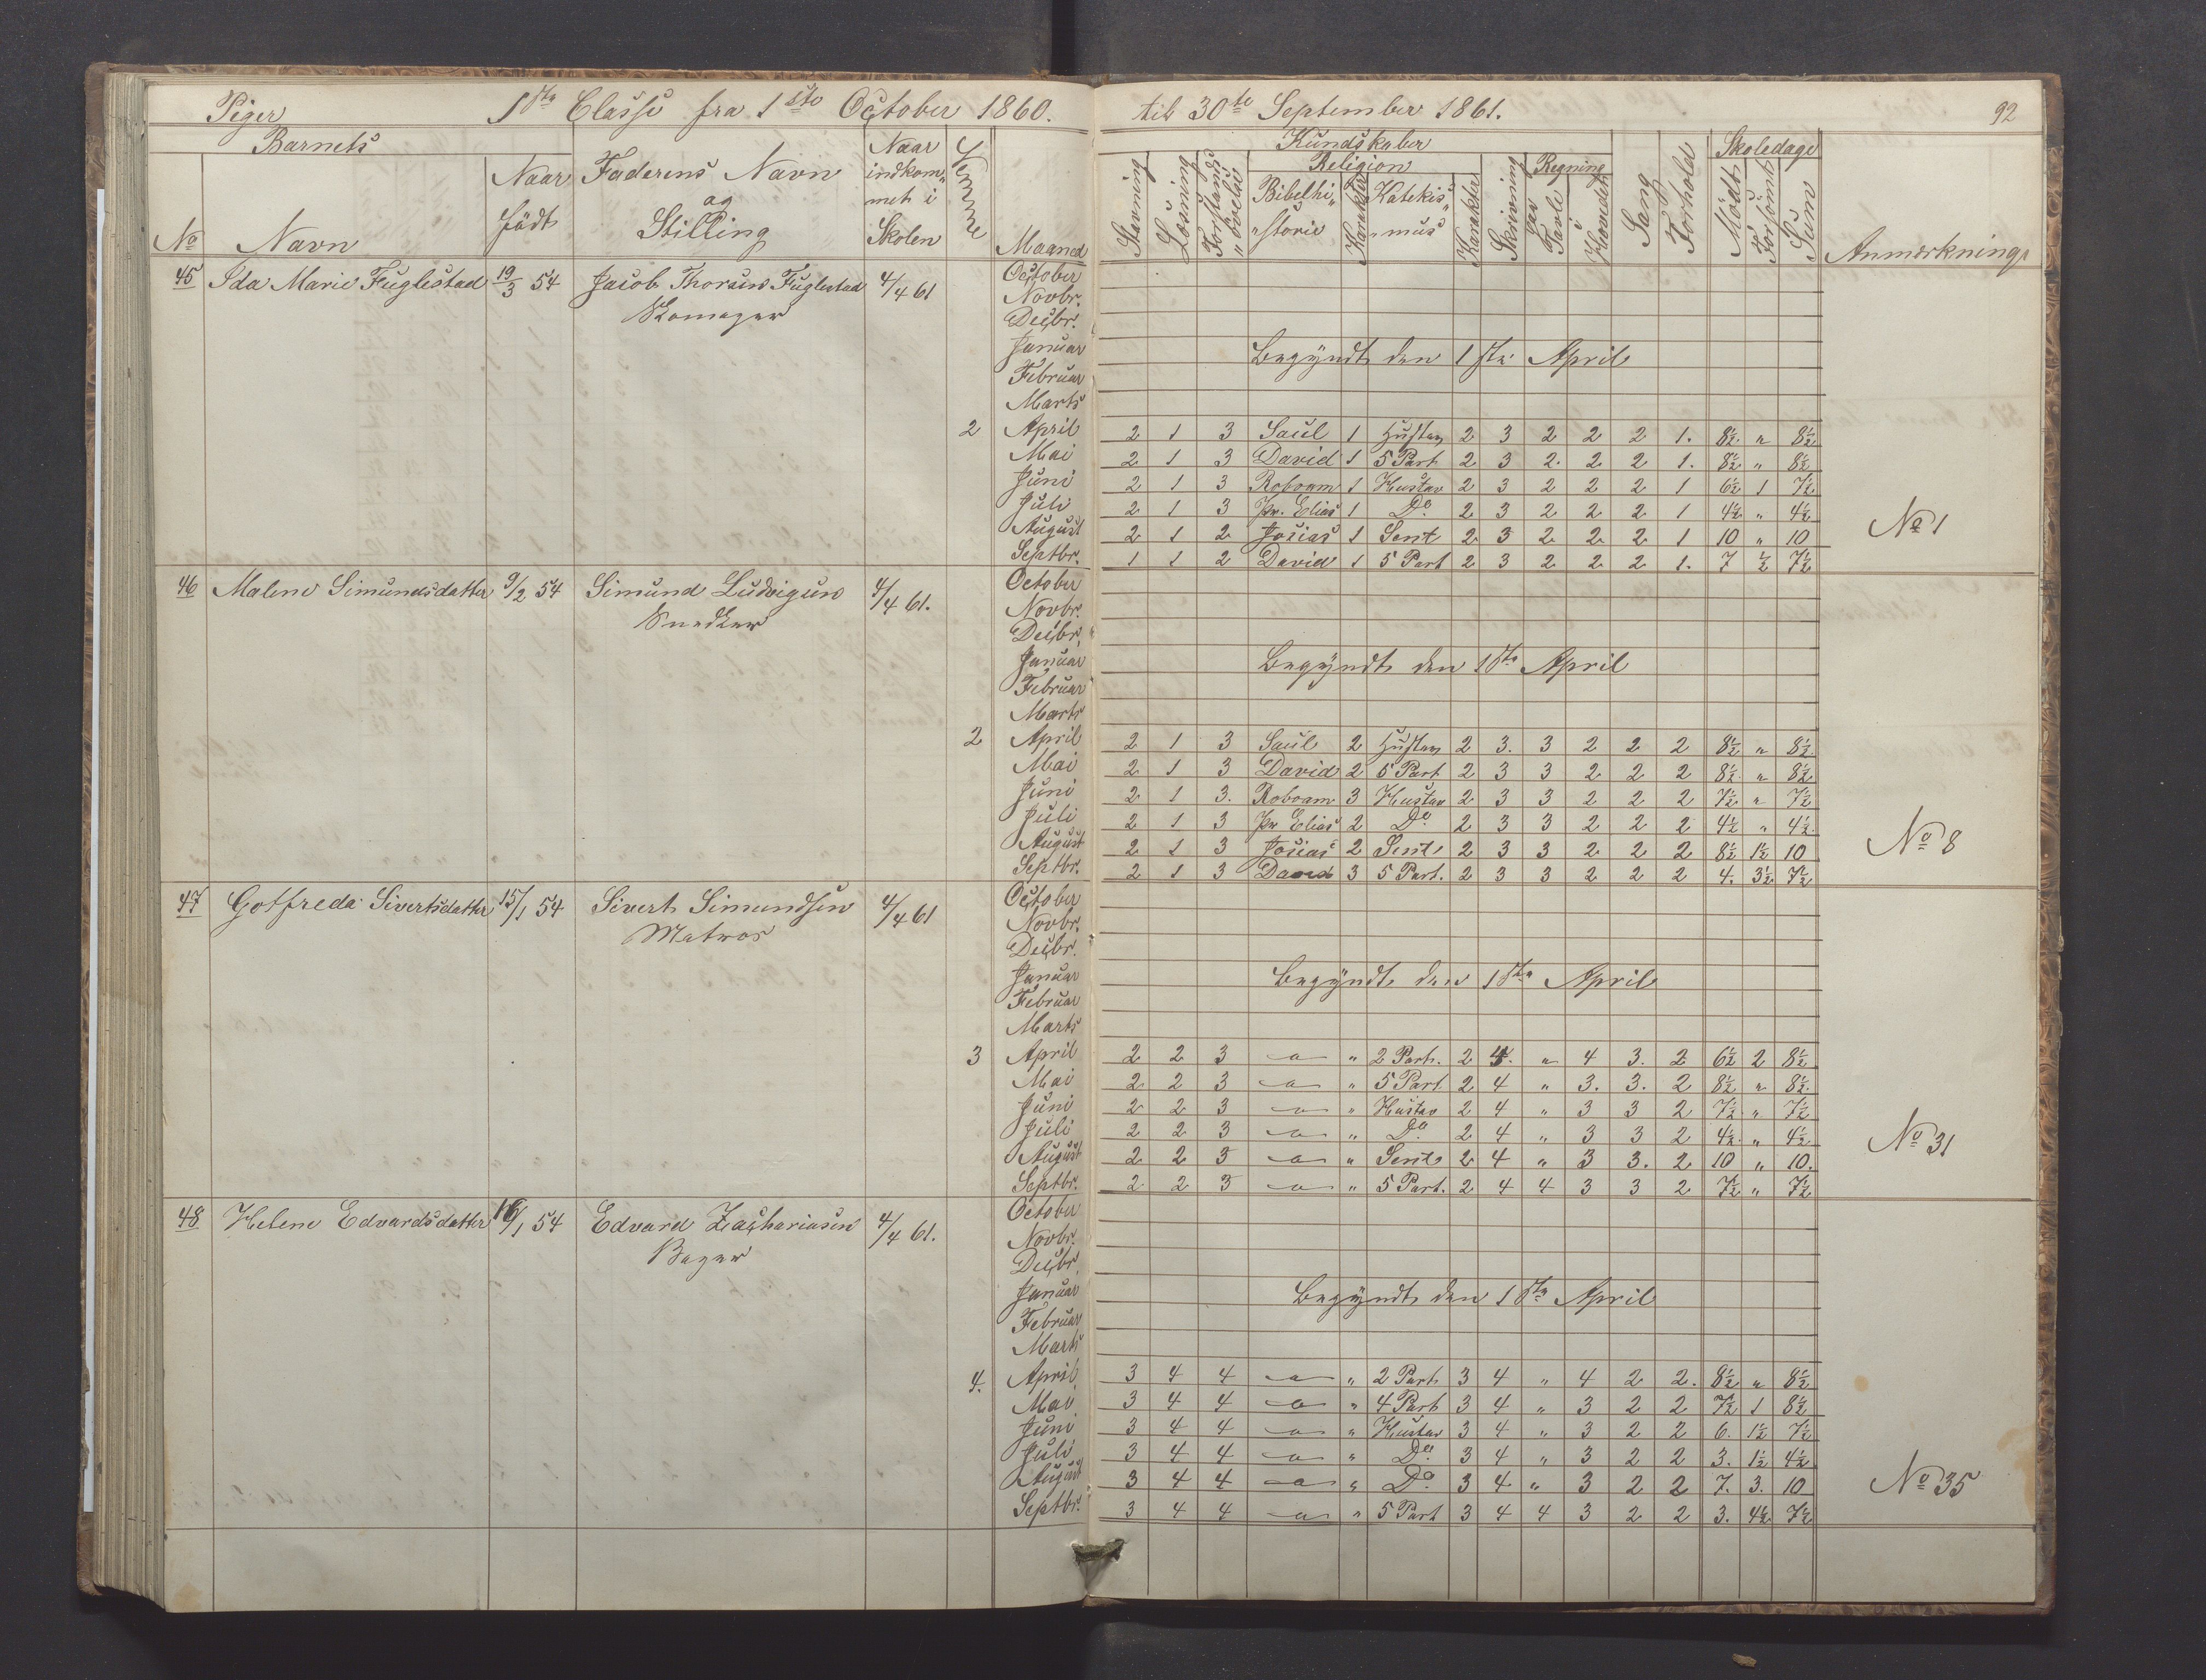 Piger 1ste Classe fra 1ste October 1860. til 30te September 1861. 92
Barnets
No Navn Naar födt Faderens Navn og Stilling Naar indkommet i Skolen Evne Maaned
Kundskaber
Stavning Læsning Forstands-övelse Religion Bibelhistorie Karakter Katekismus Karakter Skrivning Regning paa Tavle i Hovedet Sang Forhold Skoledage Mödt Forsömt Sum Anmærkning
45 Ida Marie Fuglestad 19/3 54 Jacob Thorsen Fuglestad 4/4 61 October
Skomager Novbr.
Decbr.
Januar Begyndt den 1ste April
Februar
Marts
2 April 2 1 3 Saul 1 Hustav 2 3 2 2 2 1. 8½ " 8½
Mai 2 1 3 David 1 5 Part 2 3 2. 2 2 1. 8½ " 8½
Juni 2 1 3 Roboam 1 Hustav 2 3 2 2 2 1 6½ 1 7½
Juli 2 1 3 Pr. Elias 1 Do 2 3 2 2 2 1 4½ " 4½ No 1
August 2 1 2 Josias 1 Sent 2 3 2 2 2 1 10 " 10
Septbr. 1 1 2 David 1 5 Part 2 3 2 2 2 1. 7 ½ 7½
46 Malene Simundsdatter 9/2 54 Simund Ludvigsen 4/4 61. October
Snedker Novbr.
Decbr.
Januar Begyndt den 1ste April
Februar
Marts
2 April 2 1 3 Saul 2 Hustav 2 3. 3 2 2 2 8½ " 8½
Mai 2 1 3 David 2 5 Part 2 3 3 2 2 2 8½ " 8½
Juni 2 1 3. Roboam 3 Hustav 2 3 3 2 2 2 7½ " 7½
Juli 2 1 3 Pr Elias 2 Do 2 3 3 2 2 2 4½ " 4½
August 2 1 3 Josias 2 Sent 2 3 3 2 2 2 8½ 1½ 10 No 8
Septbr. 2 1 3 David 3 5 Part. 2 3 3 2 2 2 4. 3½ 7½
47 Gotfreda Sivertsdatter 15/1 54 Sivert Simundsen 4/4 61 October
Matros Novbr.
Decbr.
Januar Begyndt den 1ste April
Februar
Marts
3 April 2 2 3 " " 2 Part. 2 4. " 4 3. 2 6½ 2 8½
Mai 2 2 3 " " 5 Part 2 4 " 3. 3. 2 8½ " 8½
Juni 2 2 3 " " Hustav 2 4 " 3 3 2 7½ " 7½
Juli 2 2 3 " " Do 2 4 " 3 3 2 4½ " 4½ No 31
August 2 2 3 " " Sent 2 4 " 3 3. 2 10 " 10.
Septbr. 2 2 3 " " 5 Part. 2 4 4 3 3 2 7½ " 7½
48 Helene Edvardsdatter 16/1 54 Edvard Zachariasen 4/4 61. October
Bager Novbr.
Decbr.
Januar Begyndt den 1ste April
Februar
Marts
4. April 3 4 4 " " 2 Part 3 4 " 4 2 2. 8½ " 8½
Mai 3 4 4 " " 4 Part 3 4 " 3 2 2 7½ 1 8½
Juni 3 4 4 " " Hustav 3 4 " 3 2 2 6. 1½ 7½
Juli 3 4 4 " " Do 3 4 " 3 2 2 3. 1½ 4½
August 3 4 4 " " Do 3 4 " 3 2 2 7. 3. 10 No 35
Septbr. 3 4 4 " " 5 Part 3 4 4 3 2 2 3. 4½ 7½